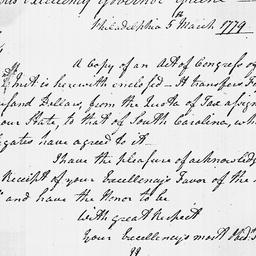 Excellency Governor Greene
Philadelphia 5th March 1779.
A Copy of an Act of Congress of
Inst is herewith enclosed - It transfers
sand Dollars, from the Quota of Tax assign
our State, to that of South Carolina, wh
gates have agreed to it -
I have the pleasure of acknowledg
Receipt of your Excellencys Favor of the
and have the Honor to be
With great Respect
Your Excellency's most Obed